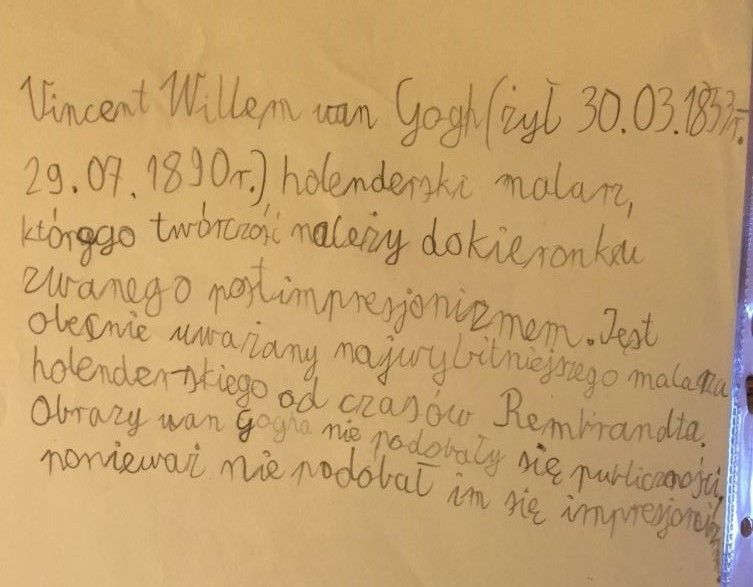 Vincent Willem wan Gogh (żył 30.03.1853r.-
29.07.1890r.), holenderski malarz,
którego twórczość należy dokieronku
zwanego postimpresjonizmem. Jest
olecnie uważany najwybitniejszego malarza
holenderskiego od czasów Rembrandta.
Obrazy wan Gogha nie podobały się publiczności,
ponieważ nie podobał im się